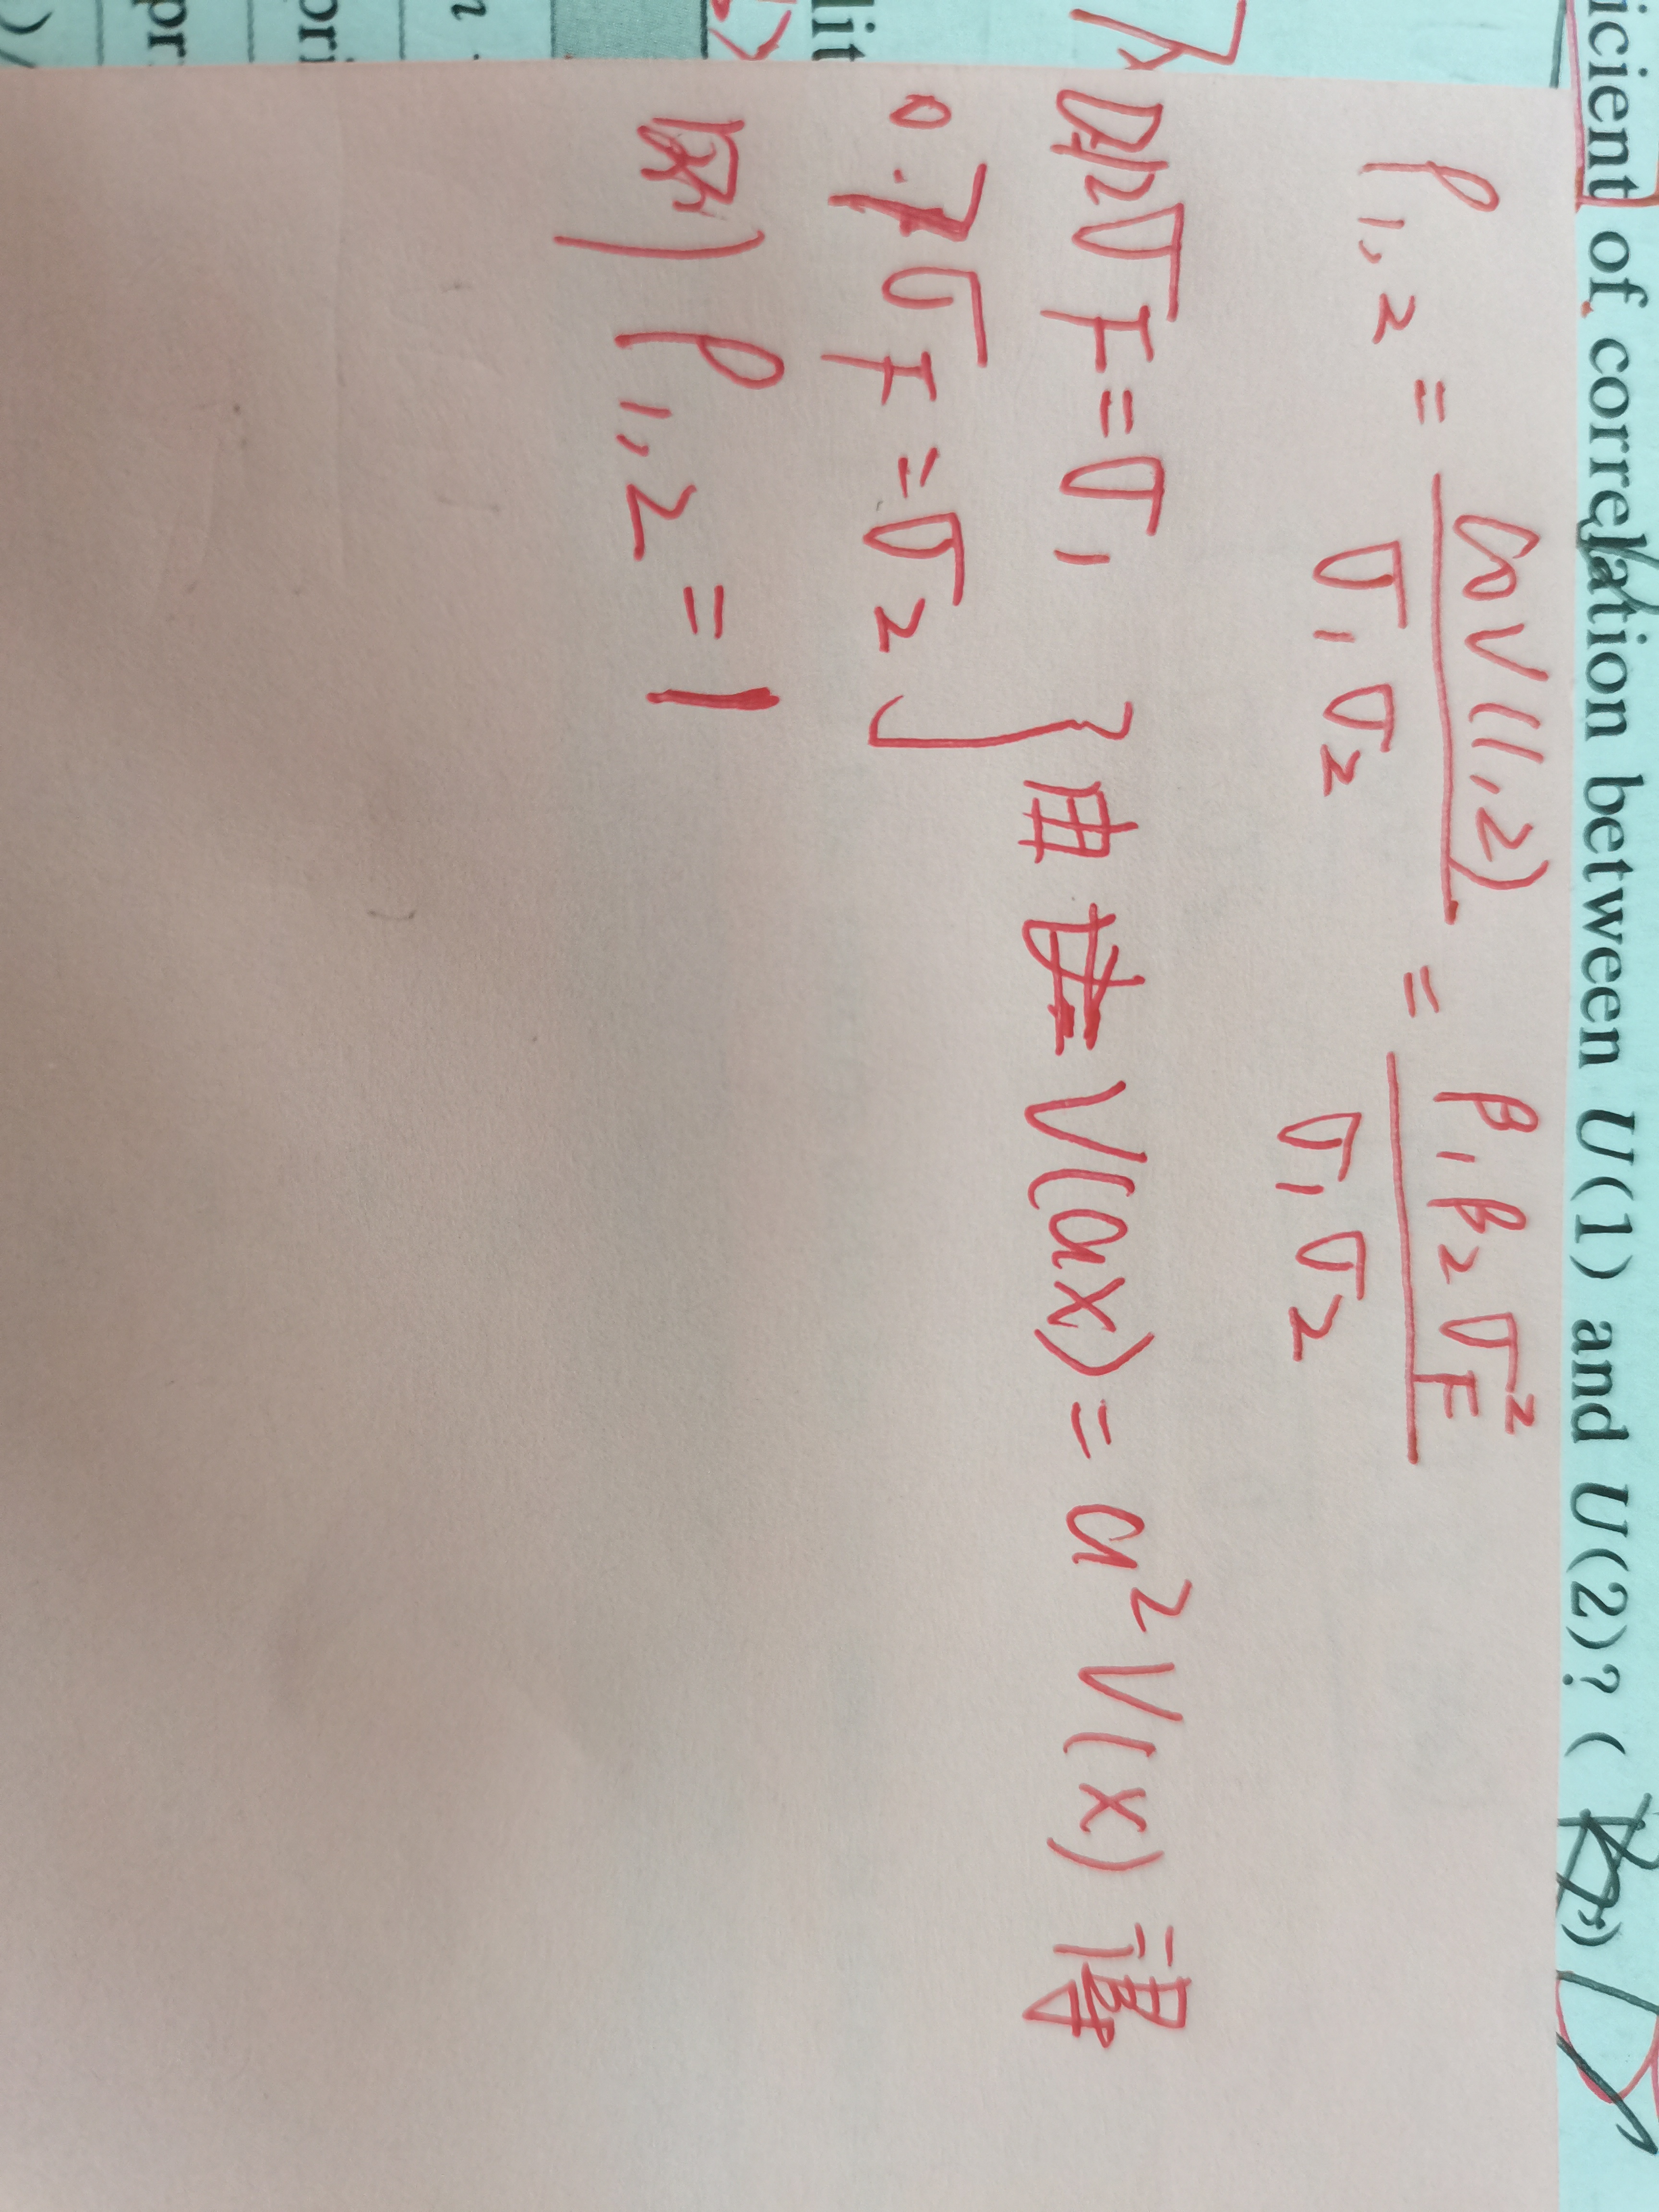 icient of correlation between U(1) and U(2)? (
ρ1,2 = cov(1,2) / σ1σ2 = β1β2σF² / σ1σ2
σF = σ1
0.7σF = σ2 } V(ax) = a²V(x) 得
ρ1,2 = 1
lit
n
ori
pr
)/